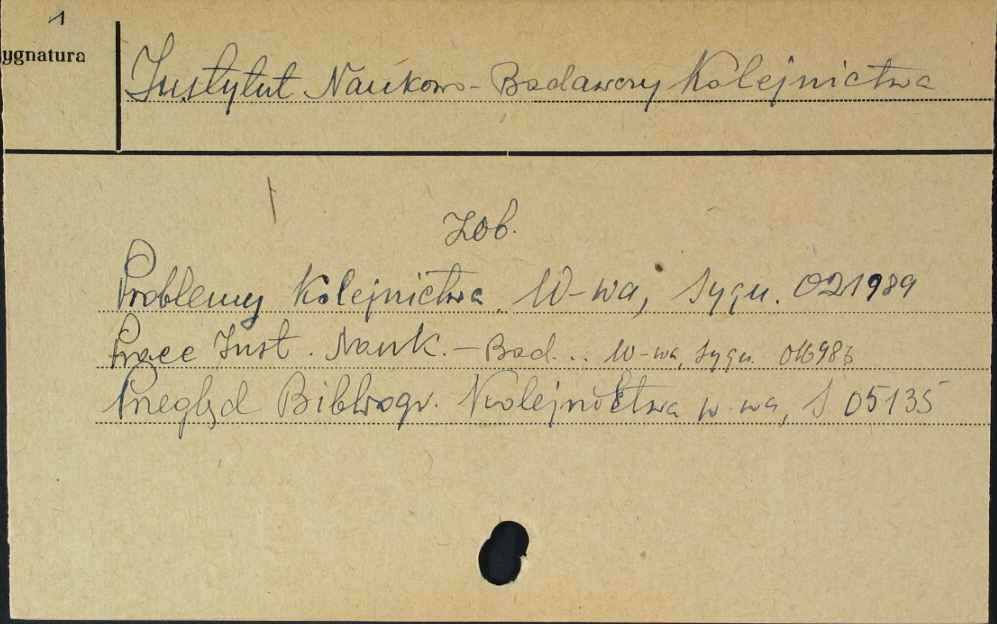 1
ygnatura
Instytut Naukowo-Badawczy Kolejnictwa
Zob.
Problemy Kolejnictwa W-wa, Sygn. 021989
Prace Inst. Nauk.-Bad... W-wa, Sygn.
Przegląd Bibliogr. Kolejnictwa W-wa, S 05135